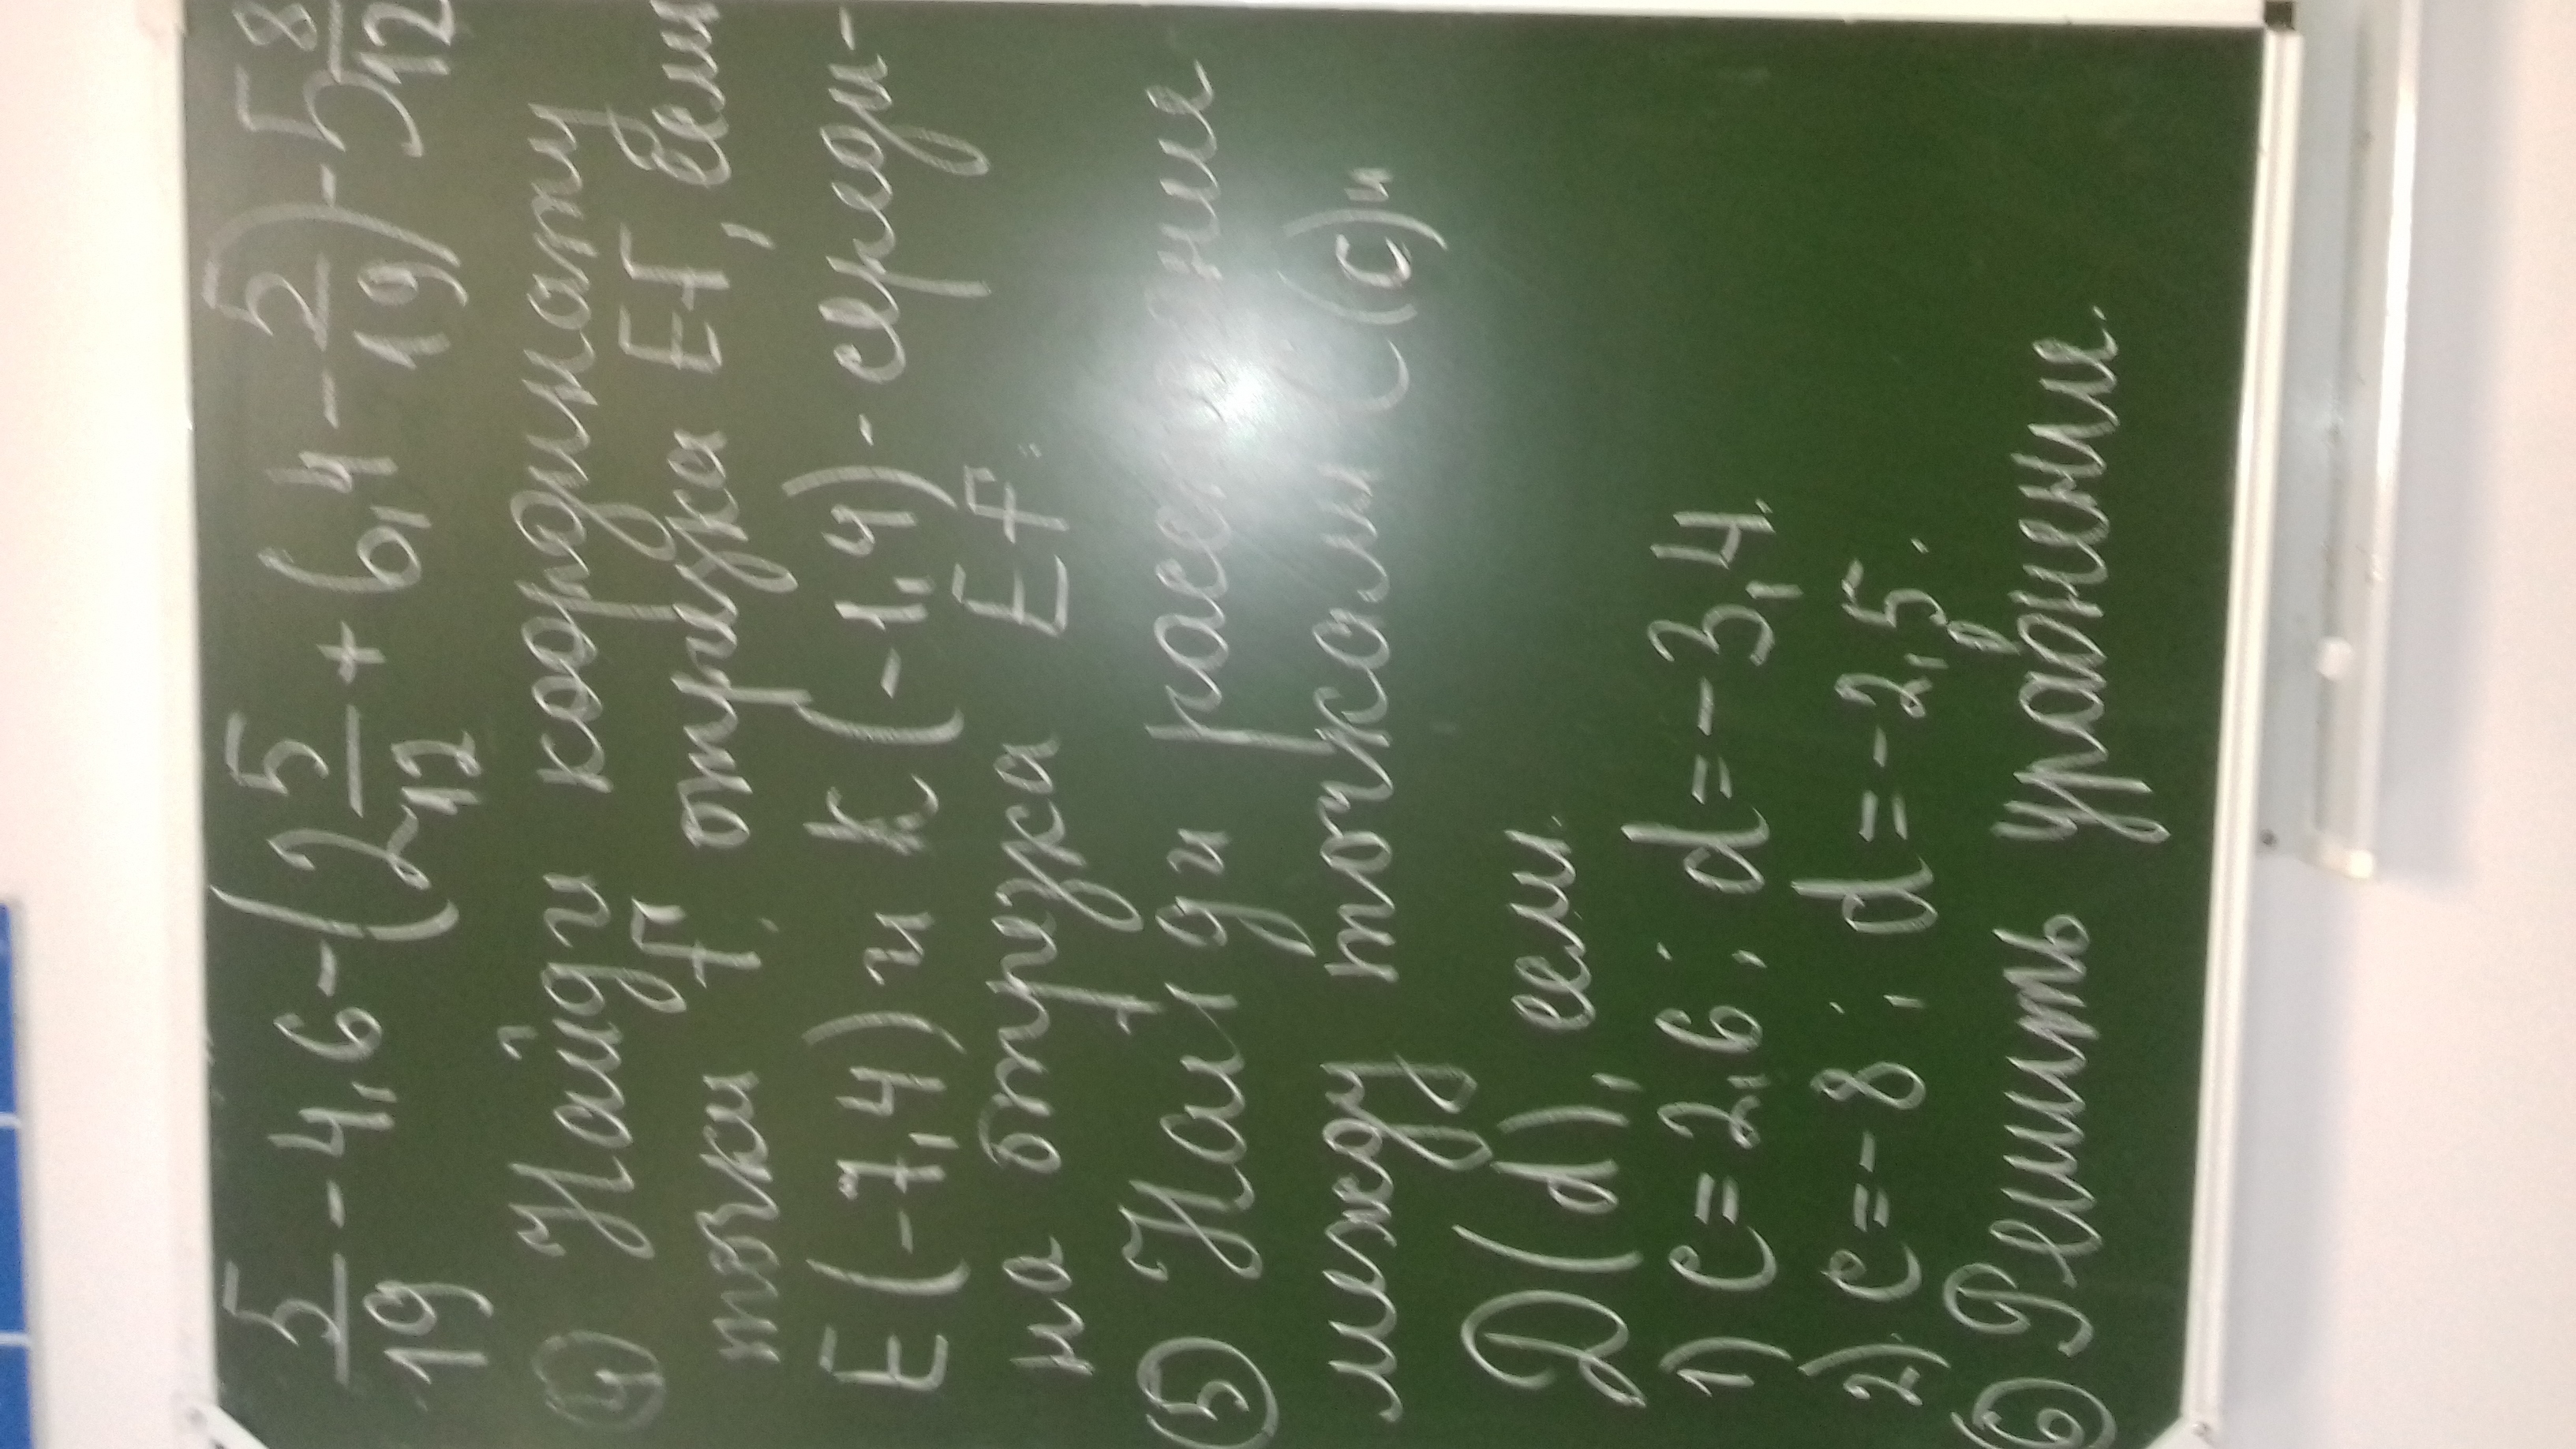 5/19 - 4,6 - (2 5/12 + 6,4 - 5/19) - 5 8/12
④ Найди координату
точки F отрезка EF, если
E(-7,4) и K(-1,4) - середи-
на отрезка EF.
⑤ Найди
между точками C(c) и
D(d), если
1) c = 2,6; d = -3,4.
2) c = -8; d = -2,5.
⑥ Решить уравнение.